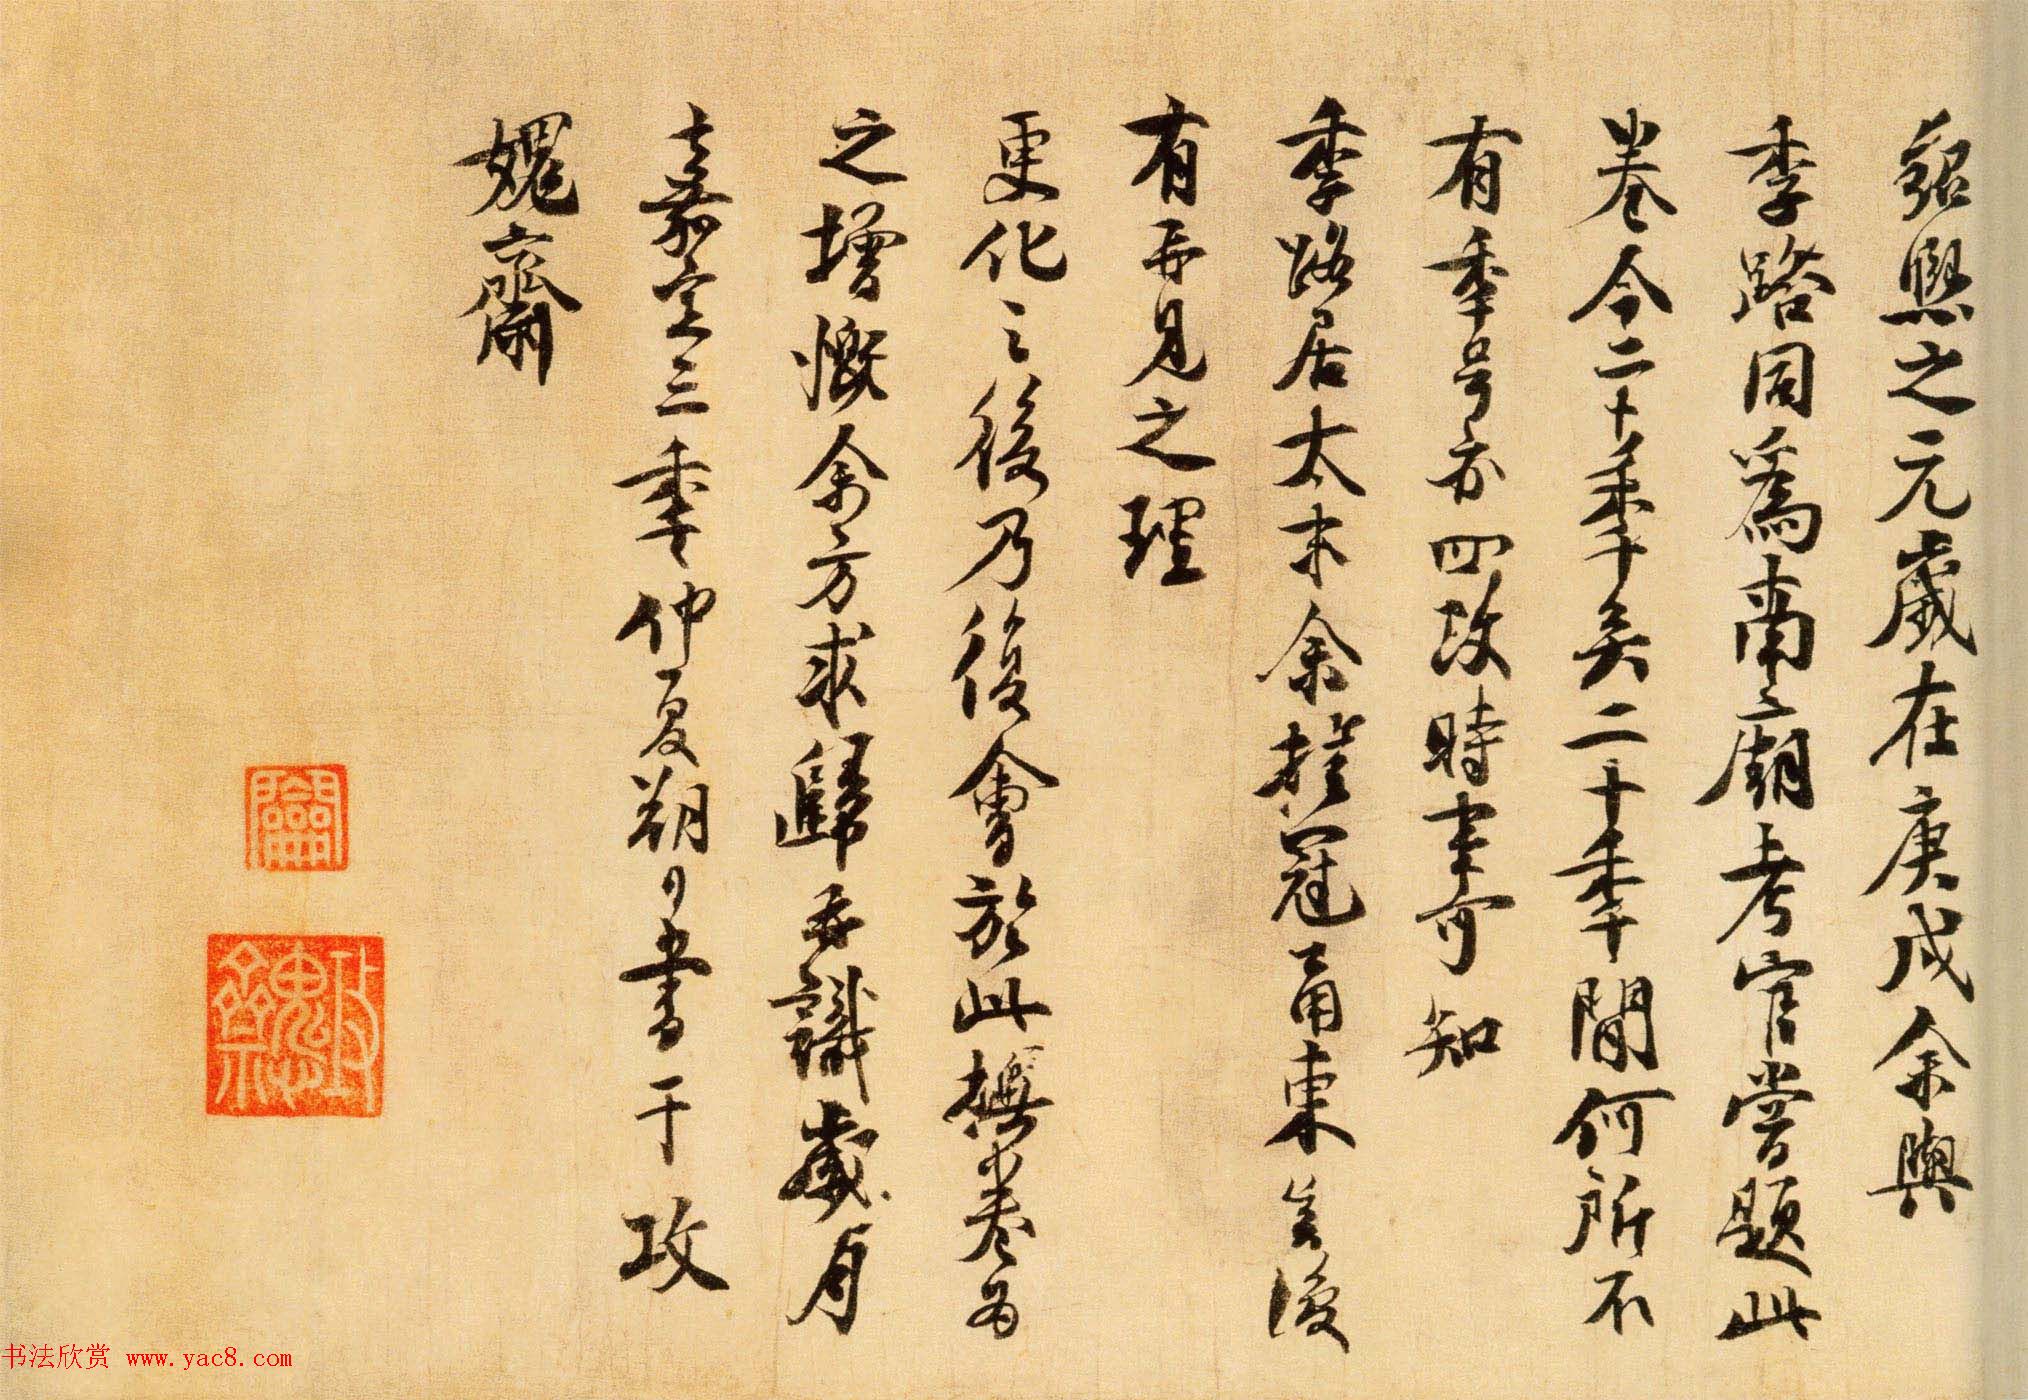 紹熙之元歲在庚戌余與
季路同爲南廟考官嘗題此
卷今二十秊矣二十秊間何所不
有秊号亦四改時事可知
季路居太末余挂冠甬東無復
有再見之理
更化之後乃復會於此撫卷為
之增慨余方求歸并識歲月
嘉定三秊仲夏朔日書于攻
媿齋
攻媿齋
书法欣赏 www.yac8.com